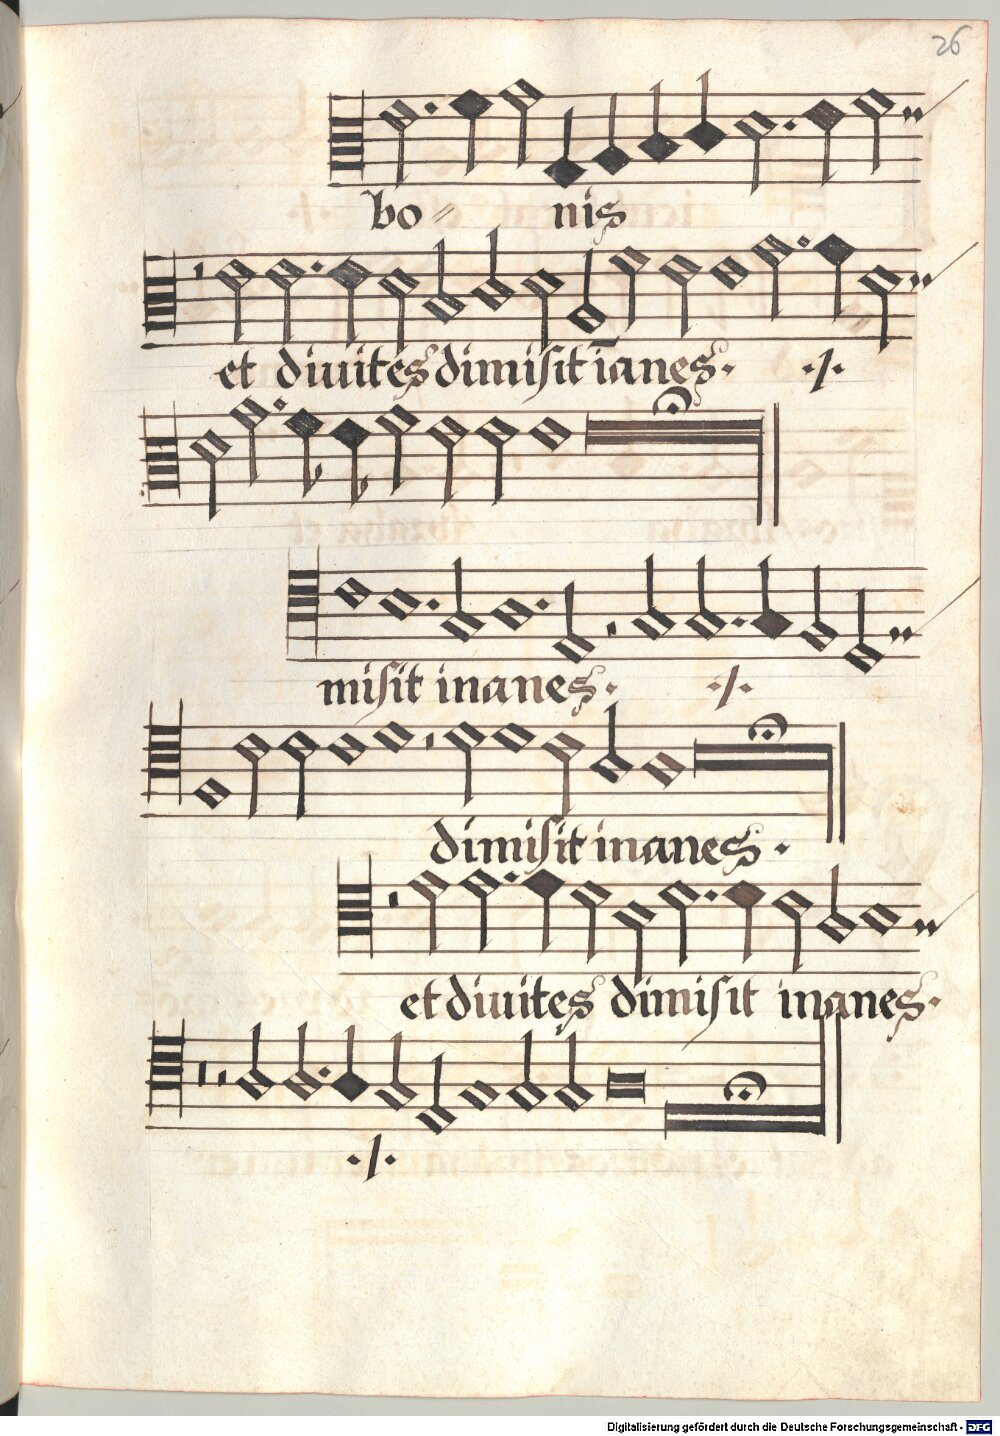 26
bo= nis
et diuites dimisit īanes. ./.
misit inanes. ./.
dimisit inanes.
et diuites dimisit inanes.
./.
Digitalisierung gefördert durch die Deutsche Forschungsgemeinschaft - DFG